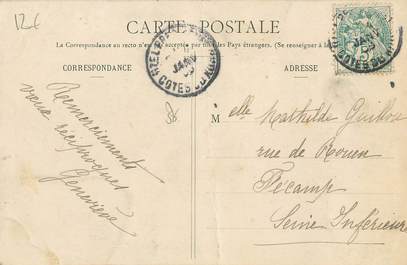 12€
CARTE POSTALE
La Correspondance au recto n'est pas acceptée par tous les Pays étrangers. (Se renseigner à la
CORRESPONDANCE
ADRESSE
JANV
COTES DU NORD
Remerciements
vœux réciproques
Geneviève
Melle Mathilde Guillou
rue de Rouen
Fécamp
Seine Inférieure